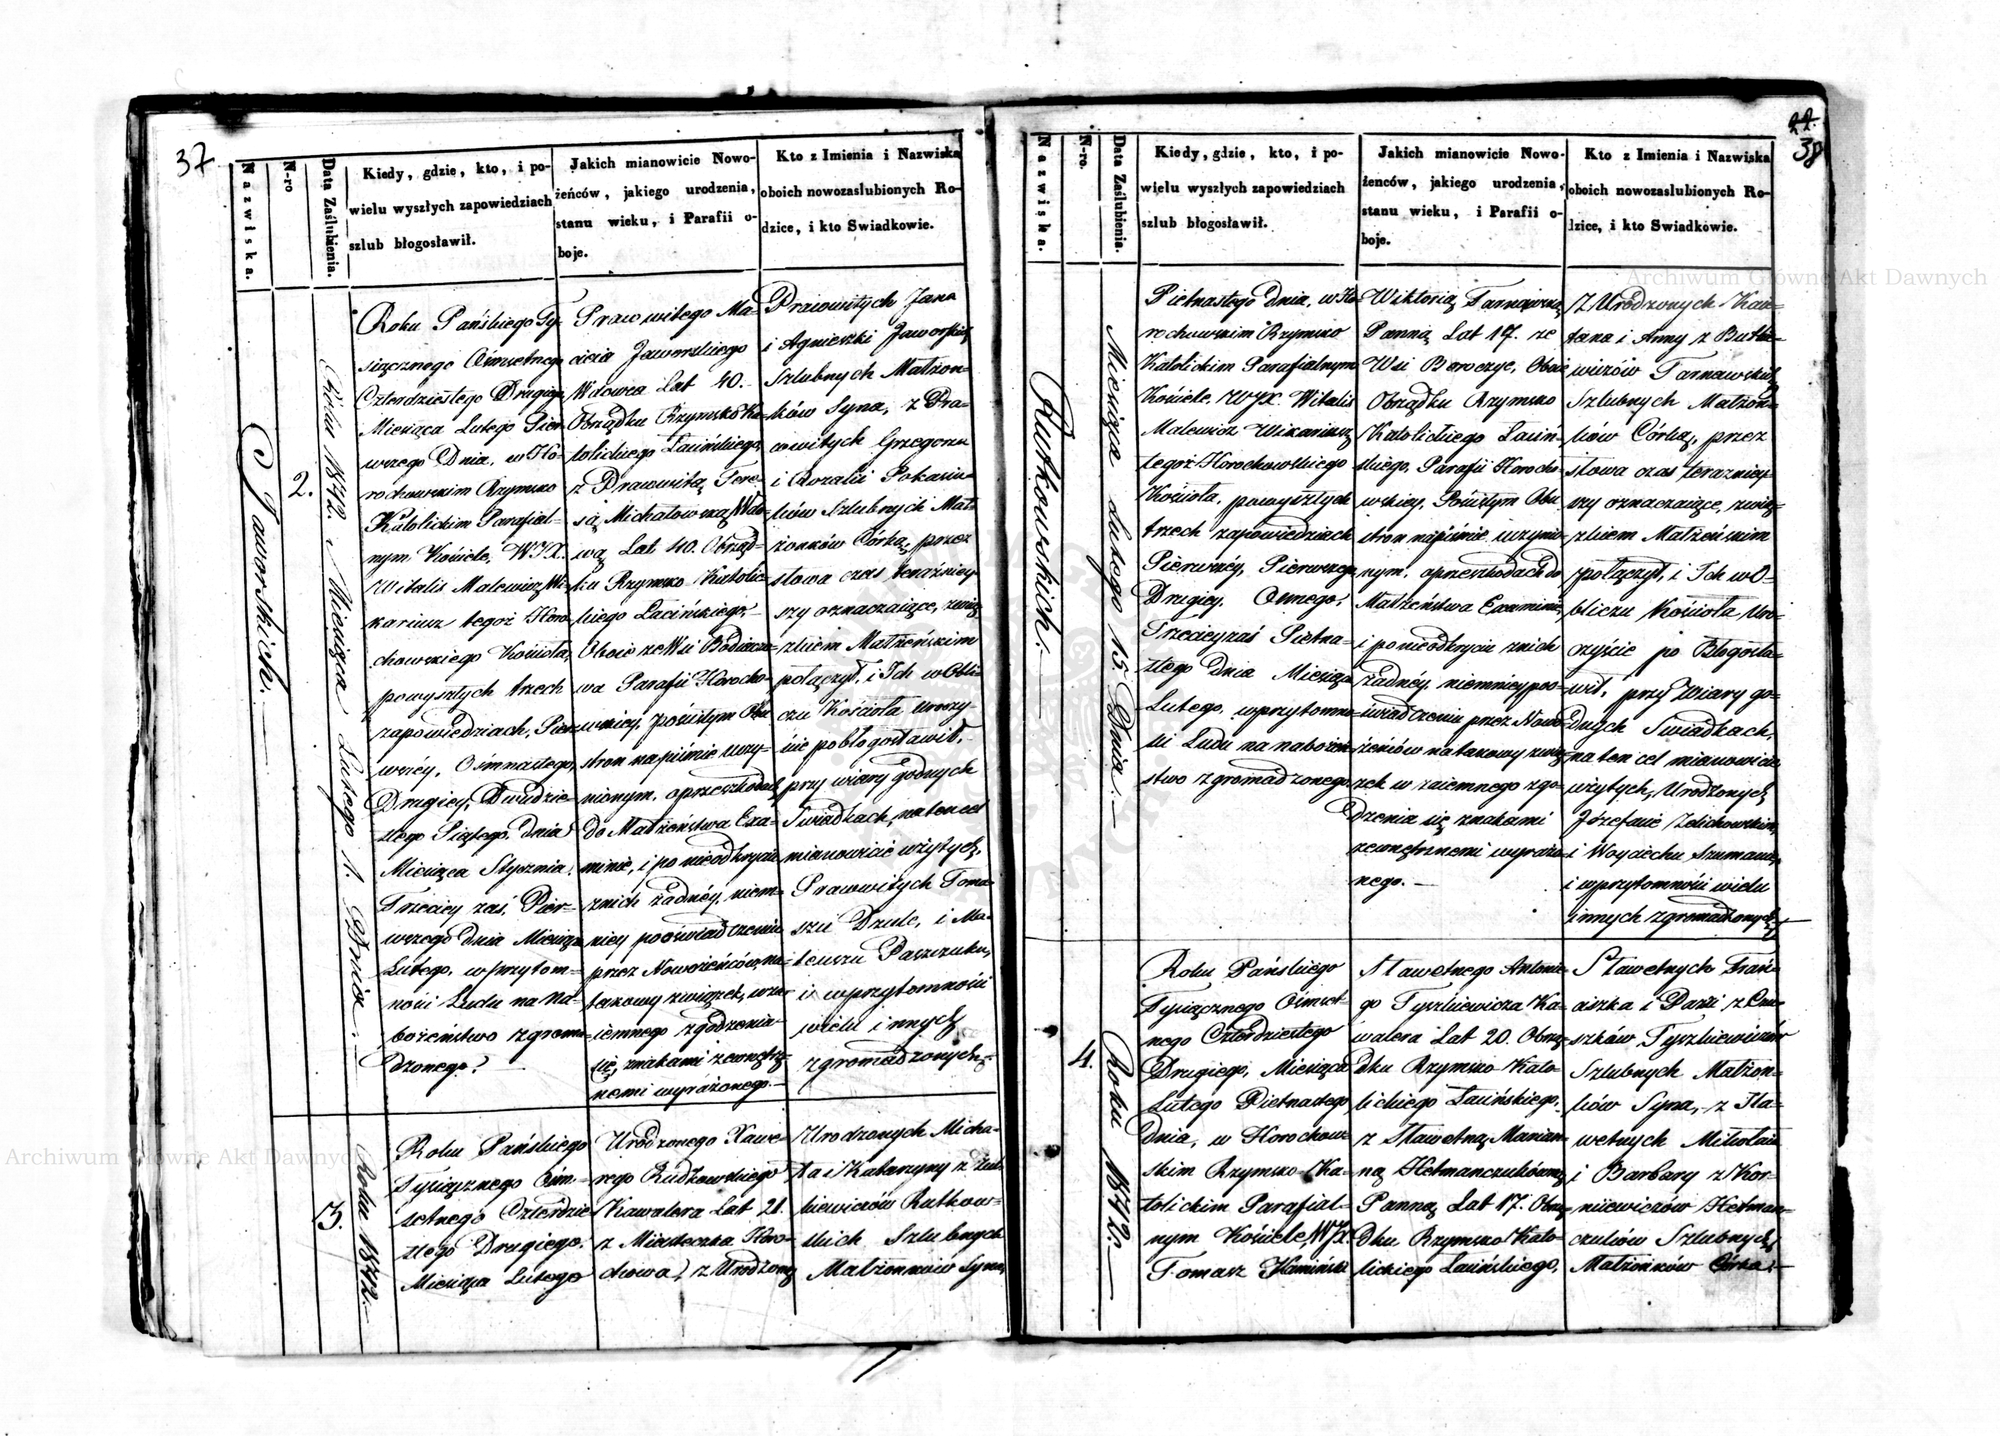 37
Nazwiska.
N-ro
Data Zaślubienia.
Kiedy, gdzie, kto, i po-
wielu wyszłych zapowiedziach
szlub błogosławił.
Jakich mianowicie Nowo-
żeńców, jakiego urodzenia,
stanu wieku, i Parafii o-
boje.
Kto z Imienia i Nazwiska
oboich nowozaslubionych Ro-
dzice, i kto Swiadkowie.
Jaworskich.
2.
Roku 1842. Miesiąca Lutego 1. Dnia.
Roku Pańskiego Ty-
siącznego Ośmsetnego
Czterdziestego Drugiego
Miesiąca Lutego Pier-
wszego Dnia, w Ho-
rochowskim Rzymsko
Katolickim Parafial-
nym Kościele, WJX.
Witalis Malewicz Wi-
kariusz tegoż Horo-
chowskiego Kościoła,
powyszłych trzech
zapowiedziach, Pier-
wszéy, Ośmnastego,
Drugiey, Dwudzie-
stego Piątego dnia
Miesiąca Stycznia,
Trzeciey zaś, Pier-
wszego dnia Miesiąca
Lutego, w przytom-
ności Ludu na na-
bożeństwo zgroma-
dzonego.
Prawowitego Ma-
cieia Jaworskiego
Wdowca Lat 40.
Obrządku Rzymsko Ka-
tolickiego Łacińskiego,
z Prawowitą Tere-
są Michałowską Wdo-
wą Lat 40. Obrząd-
ku Rzymsko Katolic-
kiego Łacińskiego,
Oboie ze Wsi
wa Parafii Horocho-
wskiey, pościsłym Obu
stron napiśmie uczy-
nionym, oprzeszkodach
do Małżeństwa Exa-
minie, i po nieodkryciu
znich żadnéy, niem-
niey poświadczeniu
przez Nowożeńców, na
takowy związek, wza-
iemnego zgodzenia
się, znakami zewnętrz-
nemi wyrażonego.
Prawowitych Jana
i Agnieszki Jaworskich
Szlubnych Małżon-
ków Syna, z Pra-
wowitych Grzegorza
i Rozalii
ków Szlubnych Mał-
żonków Córką, przez
słowa czas teraźniey-
szy oznaczaiące, zwią-
zkiem Małżeńskim
połączył, i Ich w Obli-
czu Kościoła uroczy-
ście pobłogosławił,
przy wiary godnych
Swiadkach, na ten cel
mianowicie użytych,
Prawowitych Toma-
szu Dzule, i Ma-
teuszu Paszczuku,
i w przytomności
wielu innych
zgromadzonych.
3.
Roku 1842.
Roku Pańskiego
Tysiącznego Ośm-
setnego Czterdzie-
stego Drugiego,
Miesiąca Lutego
Urodzonego Xawe-
rego Rudkowskiego
Kawalera Lat 21.
z Miasteczka Horo-
chowa, z Urodzoną
Urodzonych Micha-
ła i Katarzyny z
kiewiczów Rutkow-
skich Szlubnych
Małżonków Syna,
38
Nazwiska.
N-ro.
Data Zaślubienia.
Kiedy, gdzie, kto, i po-
wielu wyszłych zapowiedziach
szlub błogosławił.
Jakich mianowicie Nowo-
żenców, jakiego urodzenia,
stanu wieku, i Parafii o-
boje.
Kto z Imienia i Nazwiska
oboich nowozaslubionych Ro-
dzice, i kto Swiadkowie.
Rutkowskich.
Miesiąca Lutego 15. Dnia.
Pietnastego Dnia, w Ho-
rochowskim Rzymsko
Katolickim Parafialnym
Kościele, WJX. Witalis
Malewicz Wikariusz
tegoż Horochowskiego
Kościoła, powyszłych
trzech zapowiedziach
Pierwszéy, Pierwszego
Drugiey, Osmego,
Trzeciey zaś Pietna-
stego Dnia Miesiąca
Lutego, w przytomno-
ści Ludu na nabożeń-
stwo zgromadzonego
Wiktorią Tarnawską
Panną Lat 17. ze
Wsi Beroczye, Oboie
Obrządku Rzymsko
Katolickiego Łaciń-
skiego, Parafii Horocho-
wskiey, Pościsłym Obu
stron napiśmie uczynio-
nym, oprzeszkodach do
Małżeństwa Examinie,
i po nieodkryciu znich
żadnéy, niemniey poś-
wiadczeniu przez Nowo-
żeńców na takowy zwią-
zek w zaiemnego zgo-
dzenia się znakami
zewnętrznemi wyrażo-
nego.
Z Urodzonych
tana i Anny z
wiczów Tarnawskich
Szlubnych Małżon-
ków Córką, przez
słowa czas teraźniey-
szy oznaczaiące, zwią-
zkiem Małżeńskim
połączył, i Ich w O-
bliczu Kościoła Uro-
czyście po Błogosła-
wił, przy Wiary go-
dnych Swiadkach,
na ten cel mianowicie
użytych, Urodzonych
Józefacie Zelichowskim,
i Woyciechu Szuman
i w przytomności wielu
innych zgromadzonych.
4.
Roku 1842.
Roku Pańskiego
Tysiącznego Ośmset-
nego Czterdziestego
Drugiego, Miesiąca
Lutego Pietnastego
Dnia, w Horochow-
skim Rzymsko Ka-
tolickim Parafial-
nym Kościele, WJX.
Tomasz Kamiński
Sławetnego Antonie-
go Tyszkiewicza Ka-
walera Lat 20. Obrzą-
dku Rzymsko Kato-
lickiego Łacińskiego,
z Sławetną Marian-
ną Hetmanczukówną
Panną Lat 17. Obrzą-
dku Rzymsko Kato-
lickiego Łacińskiego,
Sławetnych Fran-
ciszka i
szków Tyszkiewiczów
Szlubnych Małżon-
ków Syna, z Sła-
wetnych Mikołaia
i Barbary z Kor-
niiewiczów Hetman-
czuków Szlubnych
Małżonków Córką.
Archiwum Główne Akt Dawnych
Archiwum Główne Akt Dawnych